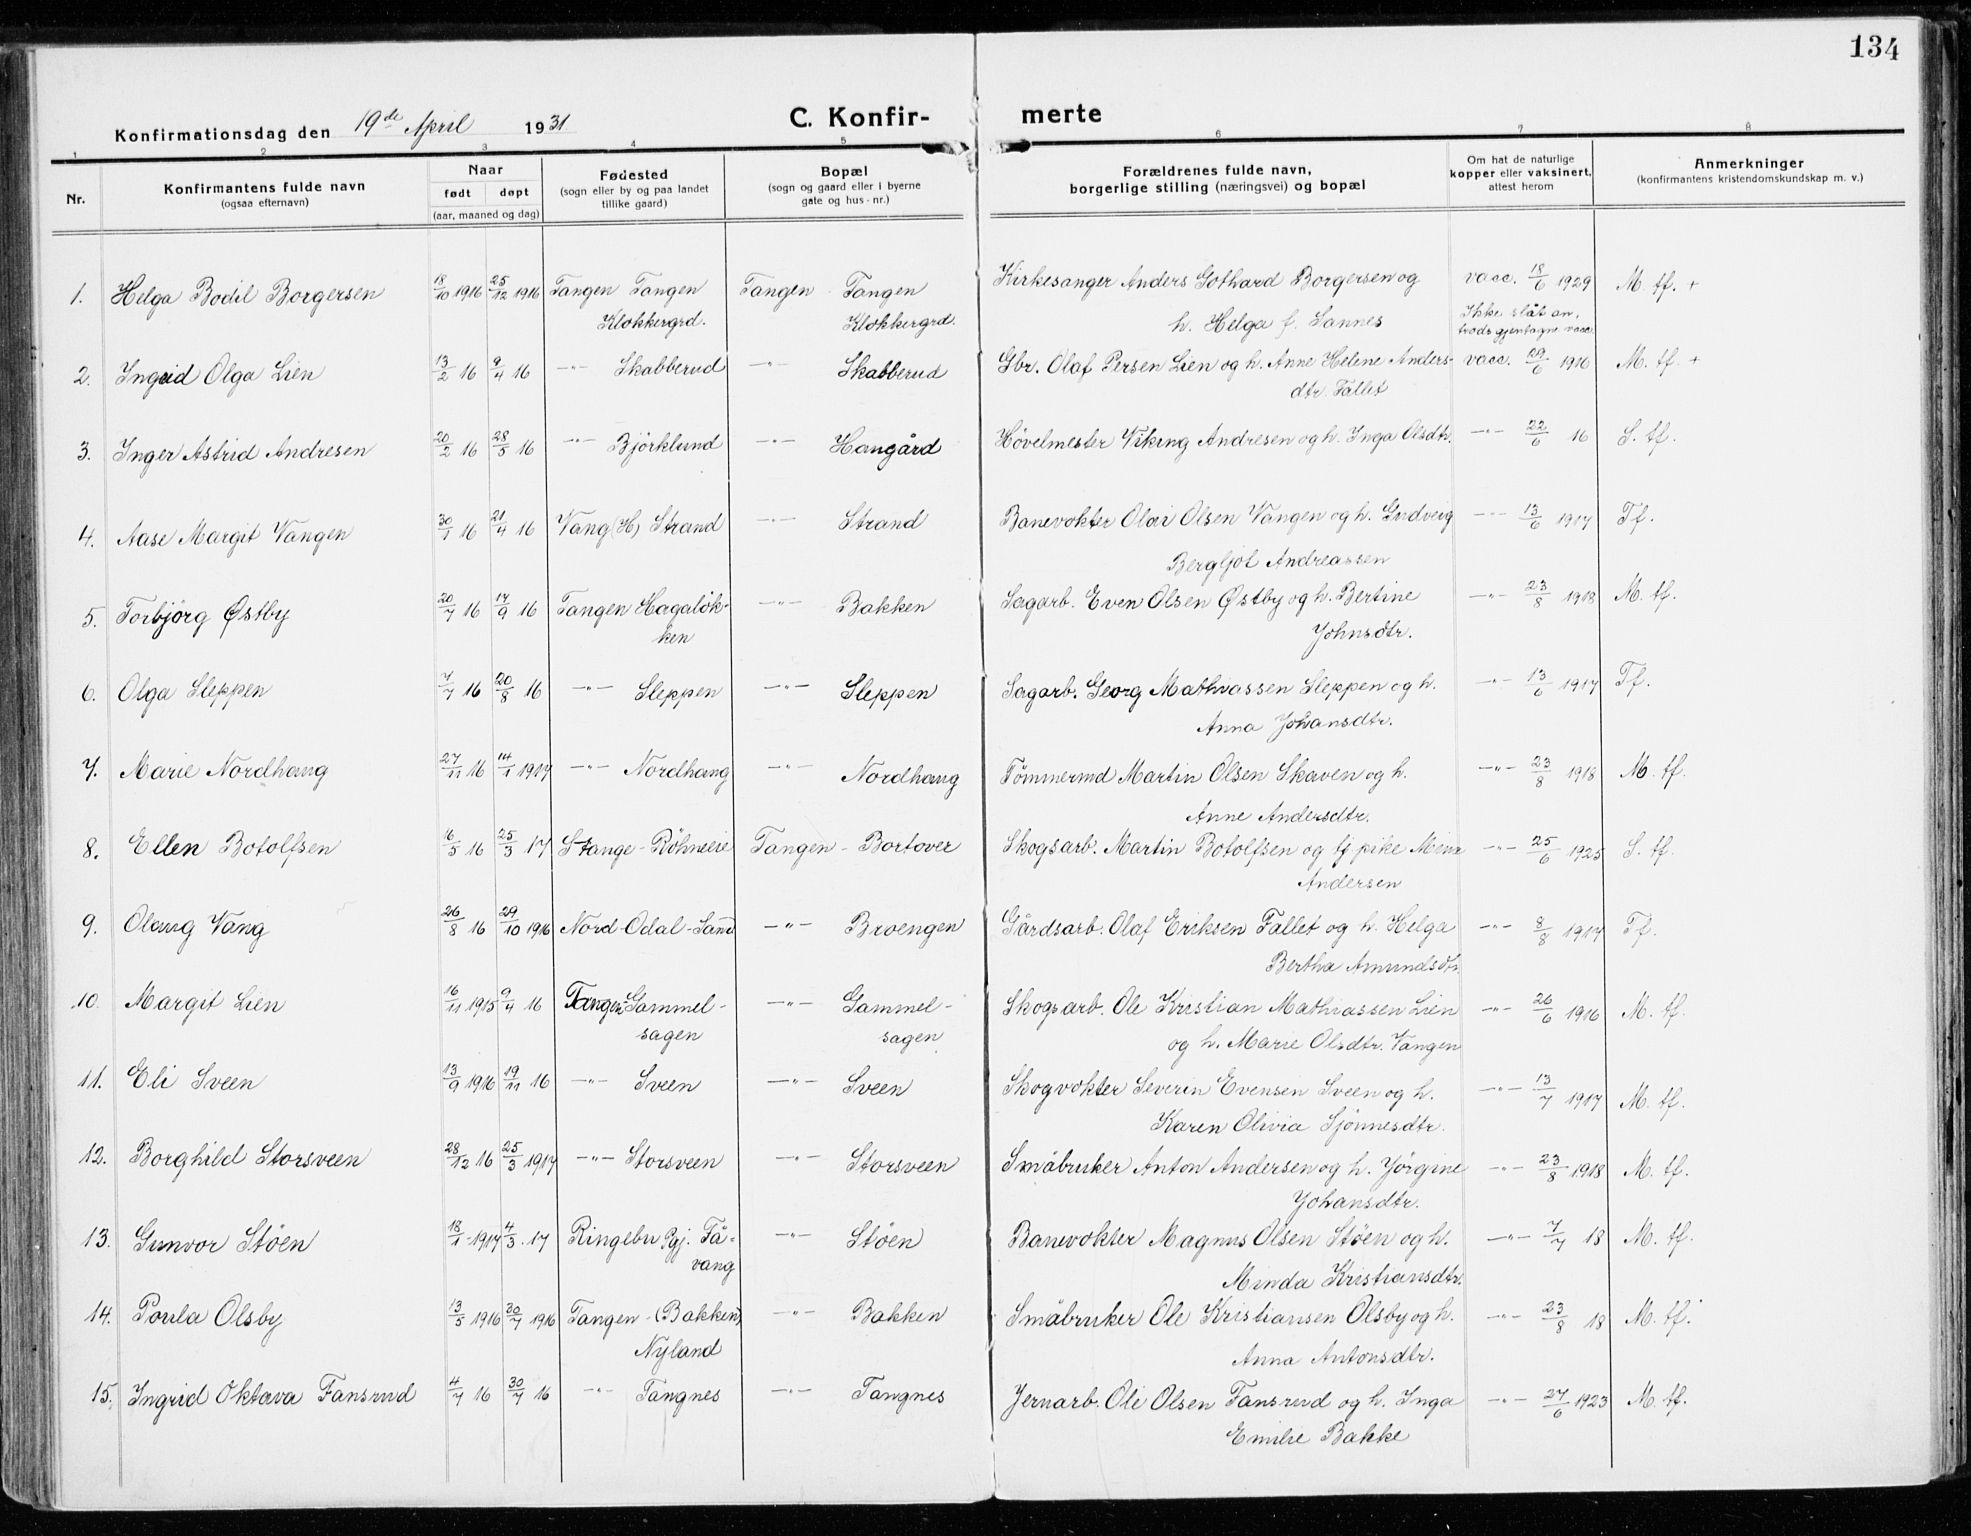 134
Konfirmationsdag den 19de April 1931
C. Konfir- merte
1 2 3 4 5 6 7 8
Nr.
Konfirmantens fulde navn
(ogsaa efternavn)
Naar
født døpt
(aar, maaned og dag)
Fødested
(sogn eller by og paa landet
tillike gaard)
Bopæl
(sogn og gaard eller i byerne
gate og hus-nr.)
Forældrenes fulde navn,
borgerlige stilling (næringsvei) og bopæl
Om hat de naturlige
kopper eller vaksinert,
attest herom
Anmerkninger
(konfirmantens kristendomskundskap m. v.)
1. Helga Bodil Borgersen 18/10 1916 25/12 1916 Tangen Tangen Tangen Tangen Kirkesanger Anders Gothard Borgersen og vacc. 18/6 1929 M. tf. +
Klokkergrd. Klokkergrd. h. Helga f. Sannes Ikke slåt an,
trods gjentagne vacc.
2. Ingrid Olga Lien 13/2 16 9/4 16 -"- Skabberud -"- Skabberud Gbr. Olaf Persen Lien og h. Anne Helene Anders- vacc. 29/6 1916 M. tf. +
dtr. Fallet
3. Inger Astrid Andresen 20/2 16 28/5 16 -"- Björklund -"- Haugård Hövelmester Viking Andresen og h. Inga Olsdtr. -"- 22/6 16 S. tf.
4. Aase Margit Vangen 30/1 16 21/4 16 Vang (H) Strand -"- Strand Banevokter Olav Olsen Vangen og h. Gudveig -"- 13/6 1917 Tf.
Bergljot Andreassen
5. Torbjörg Østby 20/7 16 17/9 16 Tangen Hagalök- -"- Bakken Sagarb. Even Olsen Østby og h. Bertine -"- 23/8 1918 M. tf.
ken Johnsdtr.
6. Olga Sleppen 7/7 16 20/8 16 -"- Sleppen -"- Sleppen Sagarb. Georg Mathiassen Sleppen og h. -"- 13/6 1917 Tf.
Anna Johansdtr.
7. Marie Nordhaug 27/11 16 14/1 1917 -"- Nordhaug -"- Nordhaug Tömmermd Martin Olsen Skaven og h. -"- 23/8 1918 M. tf.
Anne Andersdtr.
8. Ellen Botolfsen 16/5 16 25/3 17 Stange - Röhneeie Tangen - Bortover Skogsarb. Martin Botolfsen og tj pike Mina -"- 25/6 1925 S. tf.
Andersen
9. Olaug Vang 26/8 16 29/10 1916 Nord-Odal-Sand -"- Broengen Gårdsarb. Olaf Eriksen Fallet og h. Helga -"- 8/8 1917 Tf.
Bertha Amundsdtr.
10. Margit Lien 16/11 1915 9/4 16 Tangen-Gammel- -"- Gammel- Skogsarb. Ole Kristian Mathiassen Lien -"- 26/6 1916 M. tf.
sagen sagen og h. Marie Olsdtr. Vangen
11. Eli Sveen 13/9 1916 19/11 16 -"- Sveen -"- Sveen Skogvokter Severin Evensen Sveen og h. -"- 13/7 1917 M. tf.
Karen Olivia Sjönnesdtr.
12. Borghild Storsveen 28/12 16 25/3 1917 -"- Storsveen -"- Storsveen Småbruker Anton Andersen og h. Jörgine -"- 23/8 1918 M. tf.
Johansdtr.
13. Gunvor Stöen 18/1 1917 4/3 17 Ringebu Pgj. Få- -"- Stöen Banevokter Magnus Olsen Stöen og h. -"- 7/7 18 M. tf.
vang Minda Kristiansdtr.
14. Poula Olsby 13/5 1916 20/7 1916 Tangen - (Bakken) -"- Bakken Småbruker Ole Kristiansen Olsby og h. -"- 23/8 18 M. tf.
Nyland Anna Antonsdtr.
15. Ingrid Oktava Fansrud 4/7 16 30/7 16 -"- Tangnes -"- Tangnes Jernarb. Ole Olsen Fansrud og h. Inga -"- 27/6 1923 M. tf.
Emilie Bakke